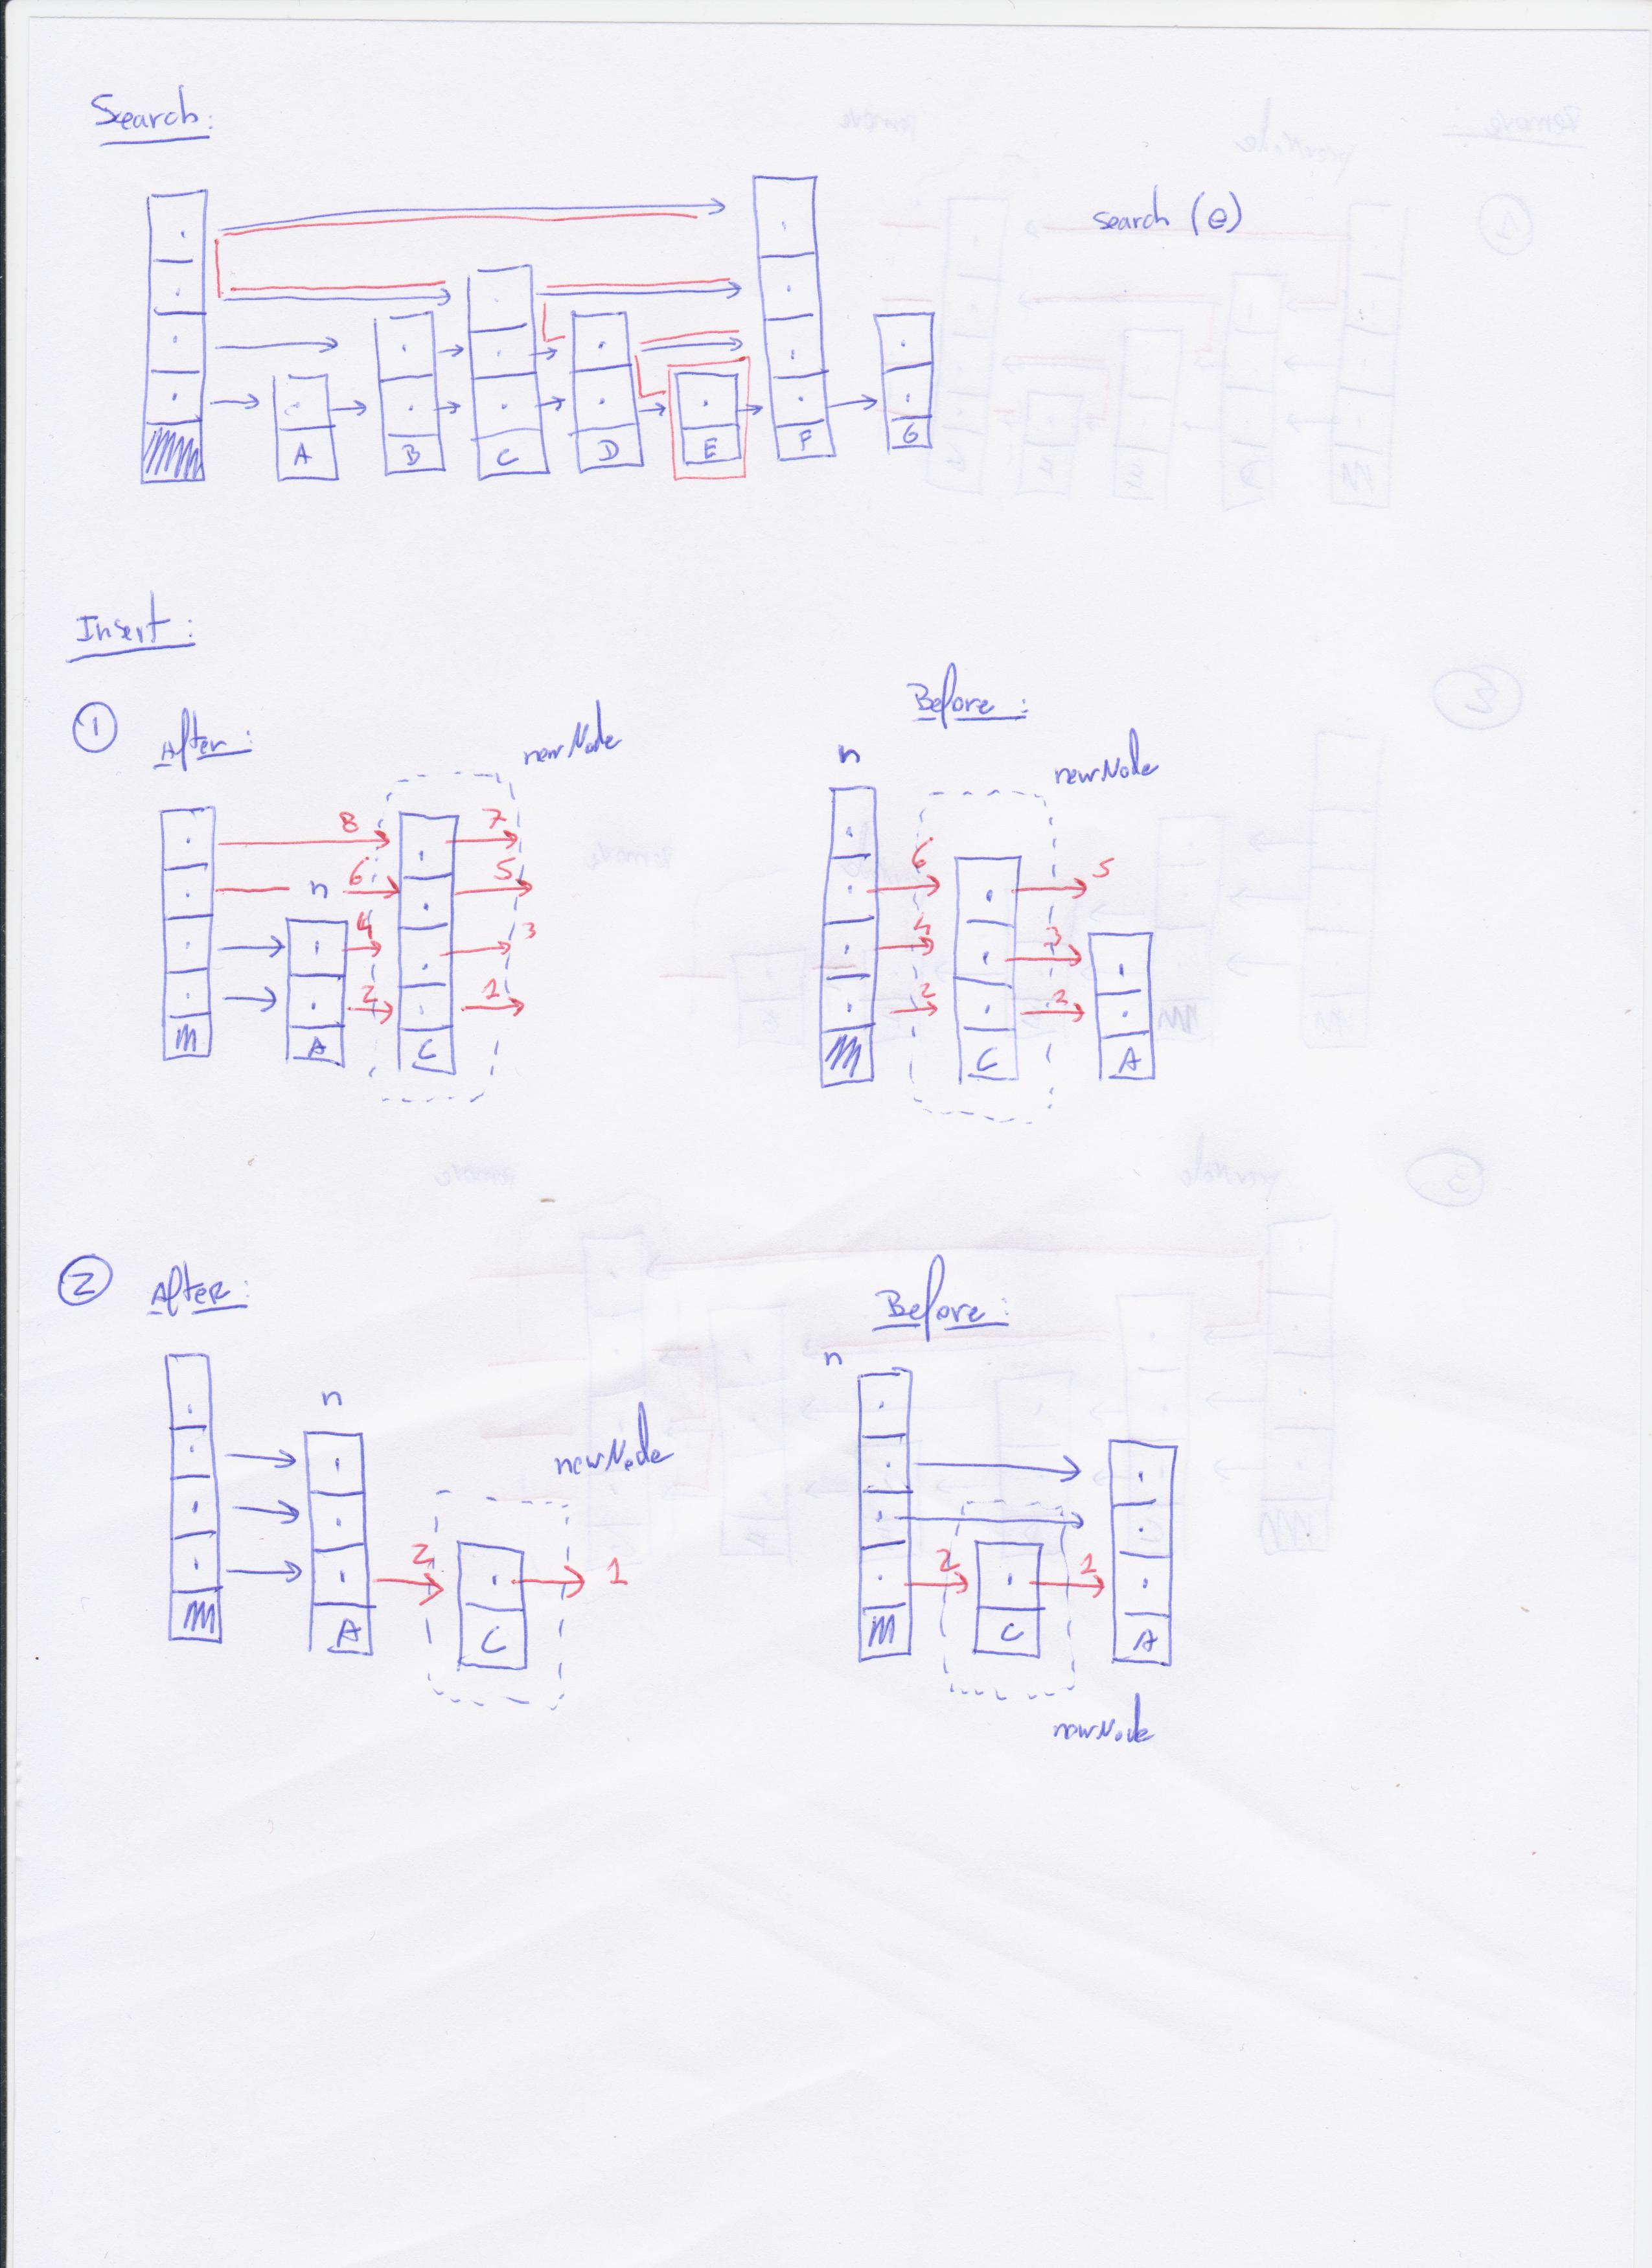 Search:
search (e)
A B C D E F G
Insert:
1 After: newNode
8 7
6 5
n
4 3
2 1
A C
Before:
n newNode
6 5
3
2 2
C A
2 After:
n
newNode
2 1
A C
Before:
n
2 1
C A
newNode